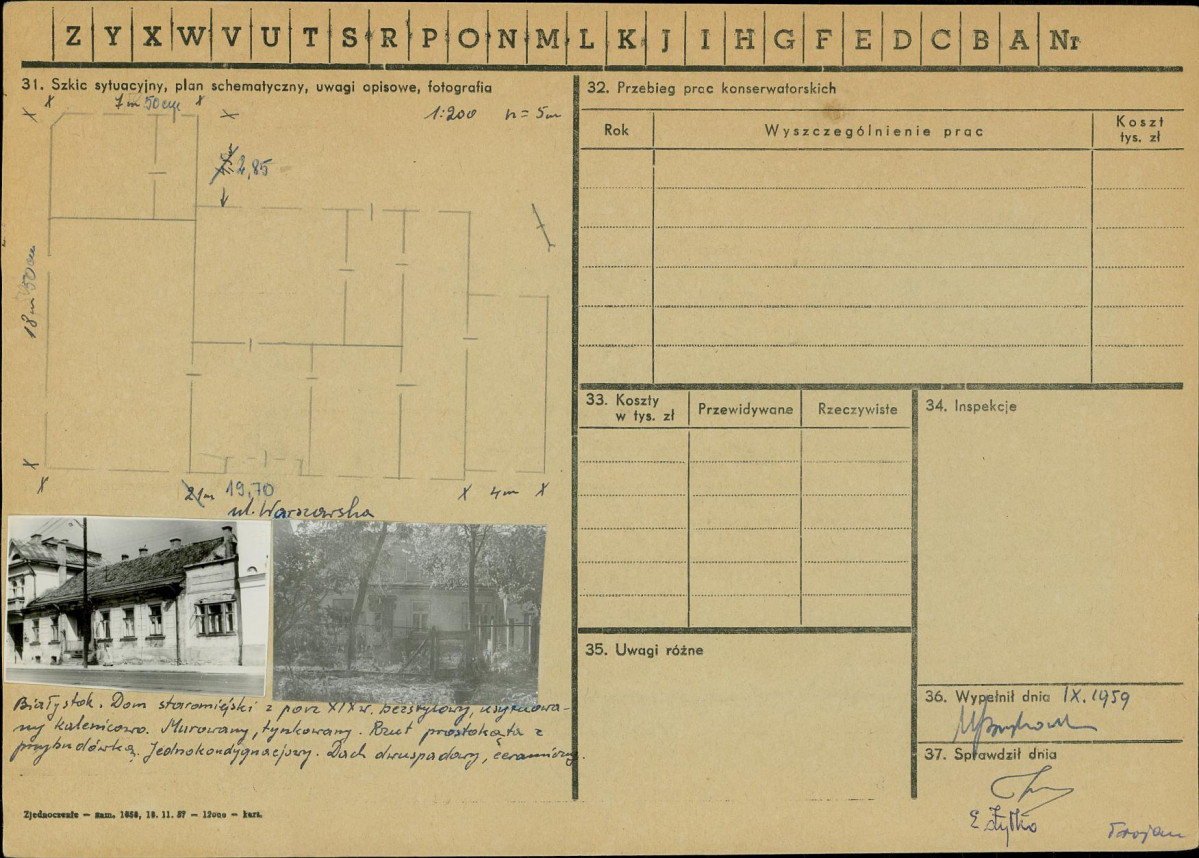 Z Y X W V U T S R P O N M L K J I H G F E D C B A Nr
31. Szkic sytuacyjny, plan schematyczny, uwagi opisowe, fotografia
7m 50cm
1:200 n = 5m
2,85
18m 50cm
21m 19,70
4m
ul. Warszawska
Białystok. Dom staromiejski z poł. XIX w. bezstylowy, usytuowa-
ny kalenicowo. Murowany, tynkowany. Rzut prostokąta z
przybudówką. Jednokondygnacjowy. Dach dwuspadowy, ceramiczny.
Zjednoczenie — zam. 1858, 18. 11. 57 — 12000 — kars.
32. Przebieg prac konserwatorskich
Rok
Wyszczególnienie prac
Koszt
tys. zł
33. Koszty
w tys. zł
Przewidywane
Rzeczywiste
34. Inspekcje
35. Uwagi różne
36. Wypełnił dnia IX.1959
37. Sprawdził dnia
Trojan